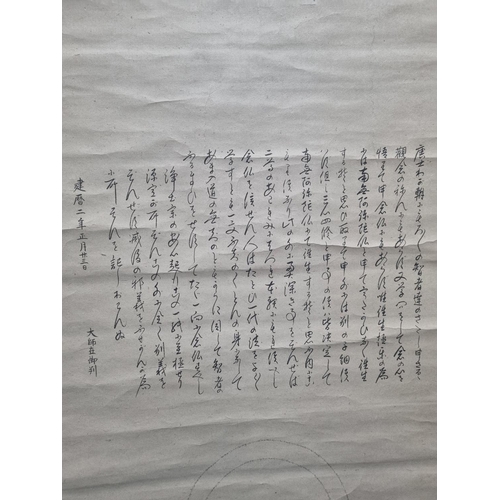 唐土わか朝にもろ〳〵の智者達のさたし申さるゝ
觀念の念にもあらす又学問をして念の心を
悟りて申念仏にもあらす只往生極楽の為
には南無阿弥陀仏と申てうたかひなく往生
するそと思ひ取て申外には別の子細候
はす但し三心四修と申事の候は皆決定して
南無阿弥陀仏にて往生するそと思ふ内に
こもり候也此外に奥深き事をそんせは
二尊のあはれみにはつれ本願にもれ候へし
念仏を信せん人はたとひ一代の法を能〳〵
学すとも一文不知のくとんの身になして
あま入道の無智のともからに同して智者の
ふるまひをせすしてたゝ一向に念仏すへし
浄土宗の安心起行此一紙に至極せり
源空か所存此外に全く別義を
そんせす滅後の邪義をふせかんか為
に所存を記しおはんぬ
建暦二年正月廿三日
大師在御判